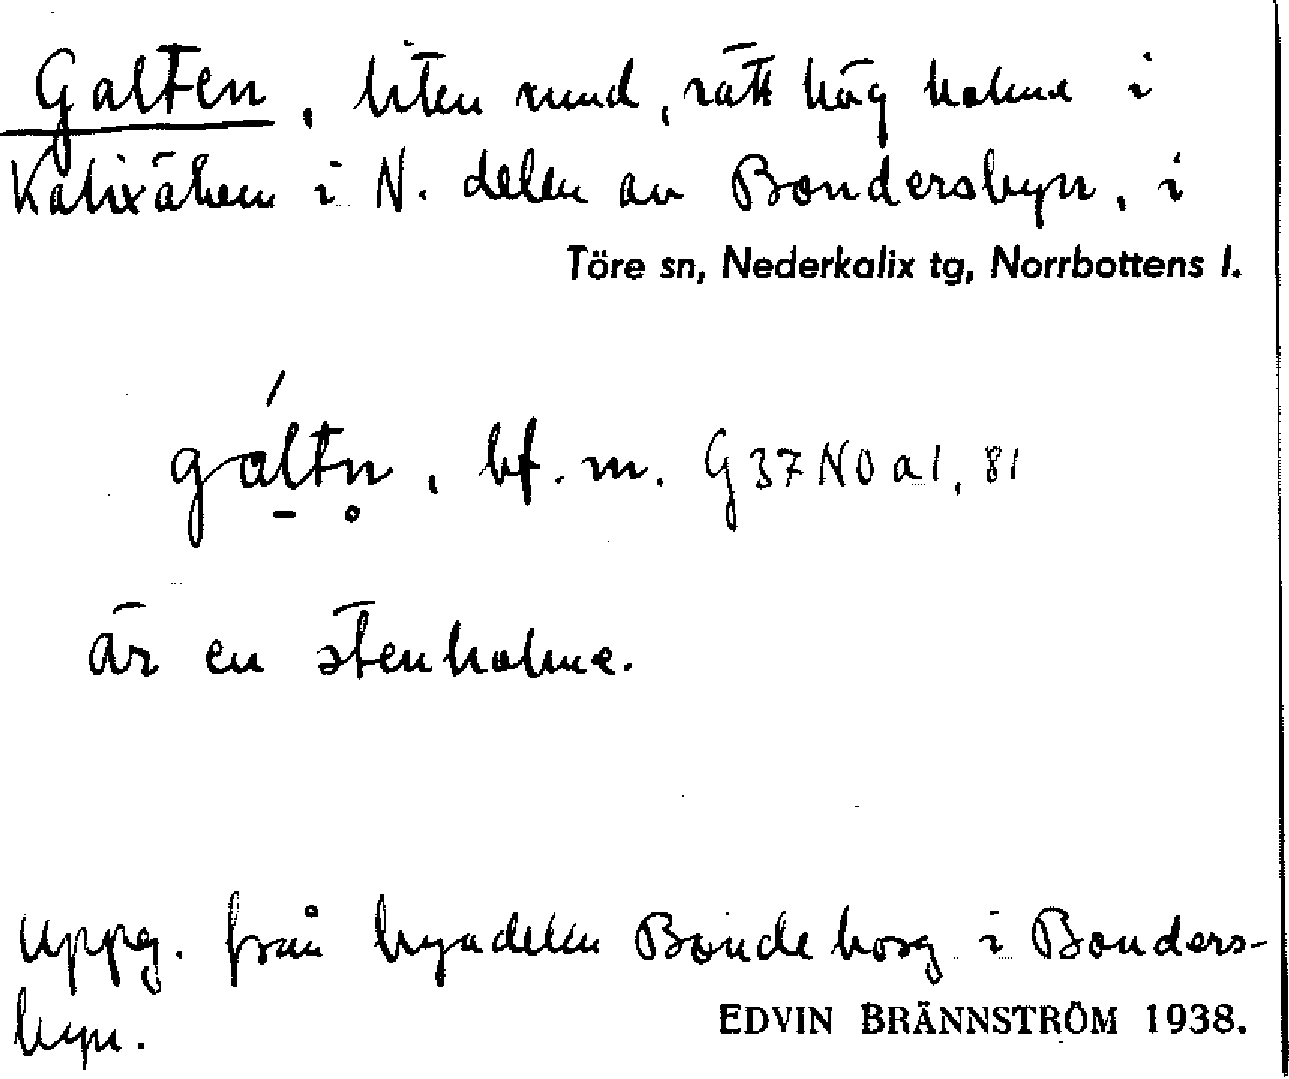 Galten, liten rund, rätt hög holme i
Kalixälven i N. delen av Bondersbyn, i
Töre sn, Nederkalix tg, Norrbottens l.
gáltn̥, bf. m. G37N0a1,81
är en stenholme.
Uppg. från byadelen Bondeborg i Bonders-
byn.
EDVIN BRÄNNSTRÖM 1938.